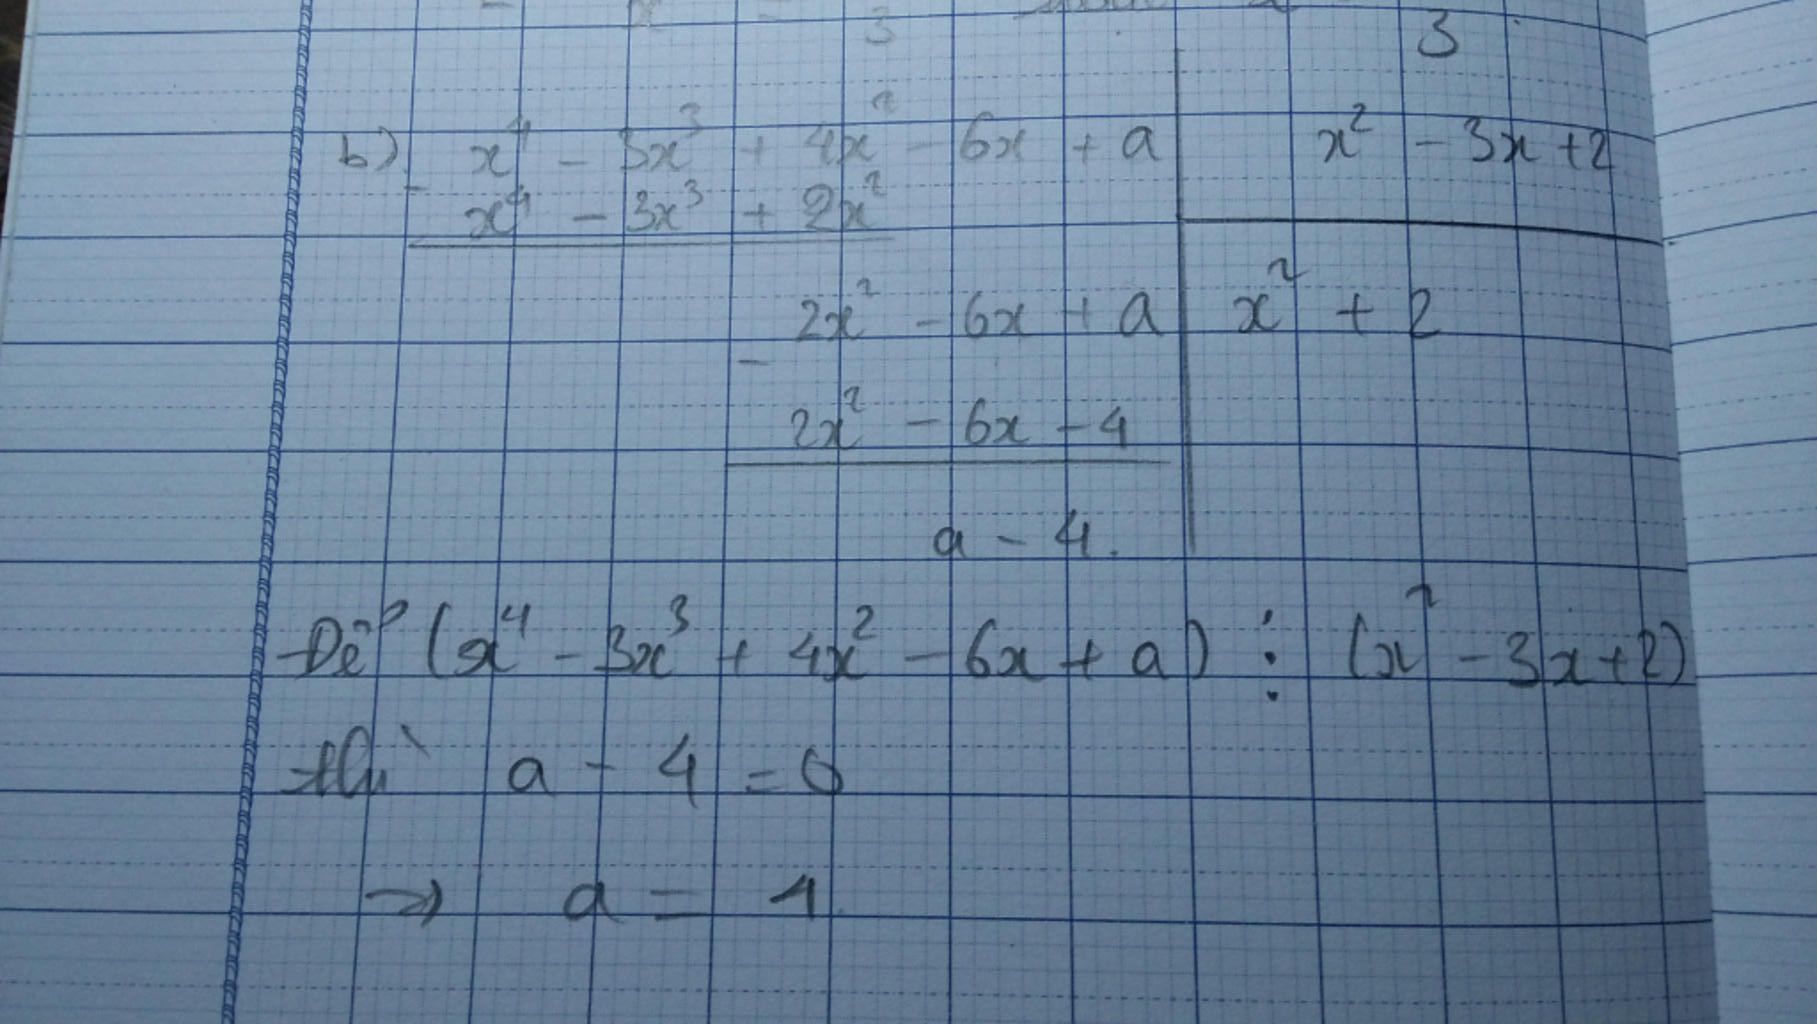 3 3
b) x⁴ - 3x³ + 4x² - 6x + a | x² - 3x + 2
- x⁴ - 3x³ + 2x²
2x² - 6x + a | x² + 2
-
2x² - 6x - 4
a - 4.
Để (x⁴ - 3x³ + 4x² - 6x + a) ⋮ (x² - 3x + 2)
thì a - 4 = 0
=> a = 4